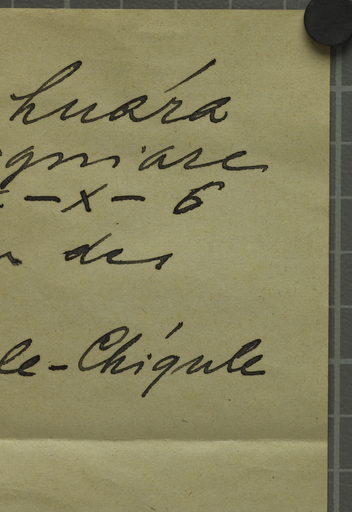 huára
gniare
- x - 6
des
le-Chigule